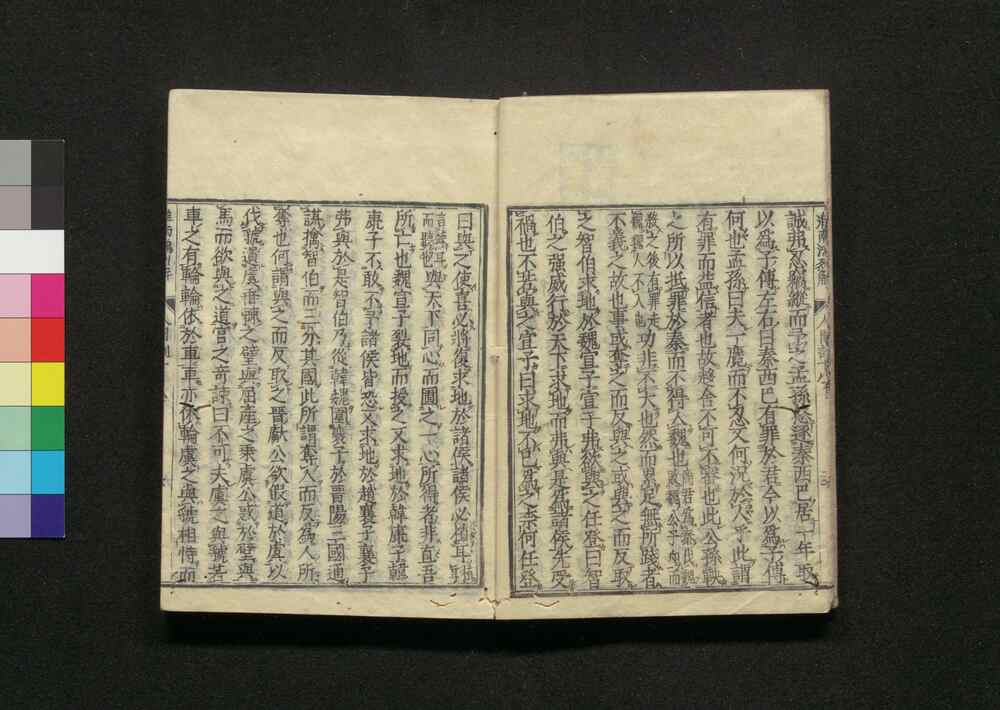 誠弗忍竊縱而予之孟孫怒逐秦西巴居一年取
以爲子傅左右曰秦西巴有罪於君今以爲子傅
何也孟孫曰夫一麑而不忍又何況於人乎此謂
有罪而益信者也故趨舍不可不審也此公孫鞅
之所以抵罪於秦而不得入魏也
功非不大也然而累足無所踐者
不義之故也事或奪之而反與之或與之而反取
之智伯求地於魏宣子宣子弗欲與之任登曰智
伯之强威行於天下求地而弗與是爲諸侯先受
禍也不若與之宣子曰求地不已爲之柰何任登
曰與之使喜必將復求地於諸侯諸侯必植耳
與天下同心而圖之一心所得者非直吾
所亡也魏宣子裂地而授之又求地於韓康子韓
康子不敢不予諸侯皆恐又求地於趙襄子襄子
弗與於是智伯乃從韓魏圍襄子於晋陽三國通
謀擒智伯而三分其國此所謂奪人而反爲人所
奪也何謂與之而反取之晋獻公欲假道於虞以
伐虢遺虞垂棘之璧與屈產之乘虞公惑於璧與
馬而欲與之道宮之奇諫曰不可夫虞之與虢若
車之有輪輪依於車車亦依輪虞之與虢相恃而